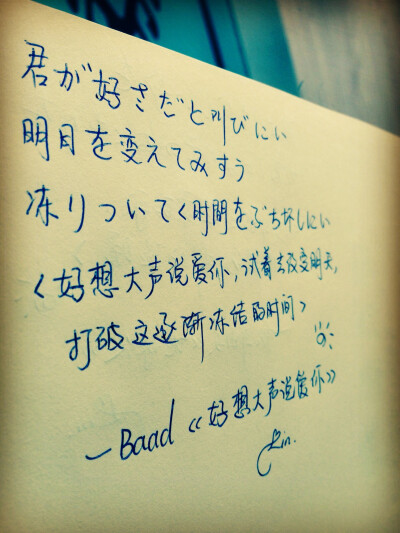 君が好きだと叫びにい
明日を変えてみすう
冻りついてく時間をぶち坏しにい
<好想大声说爱你,试着去改变明天,
打破这逐渐冻结的时间>
—Baad《好想大声说爱你》